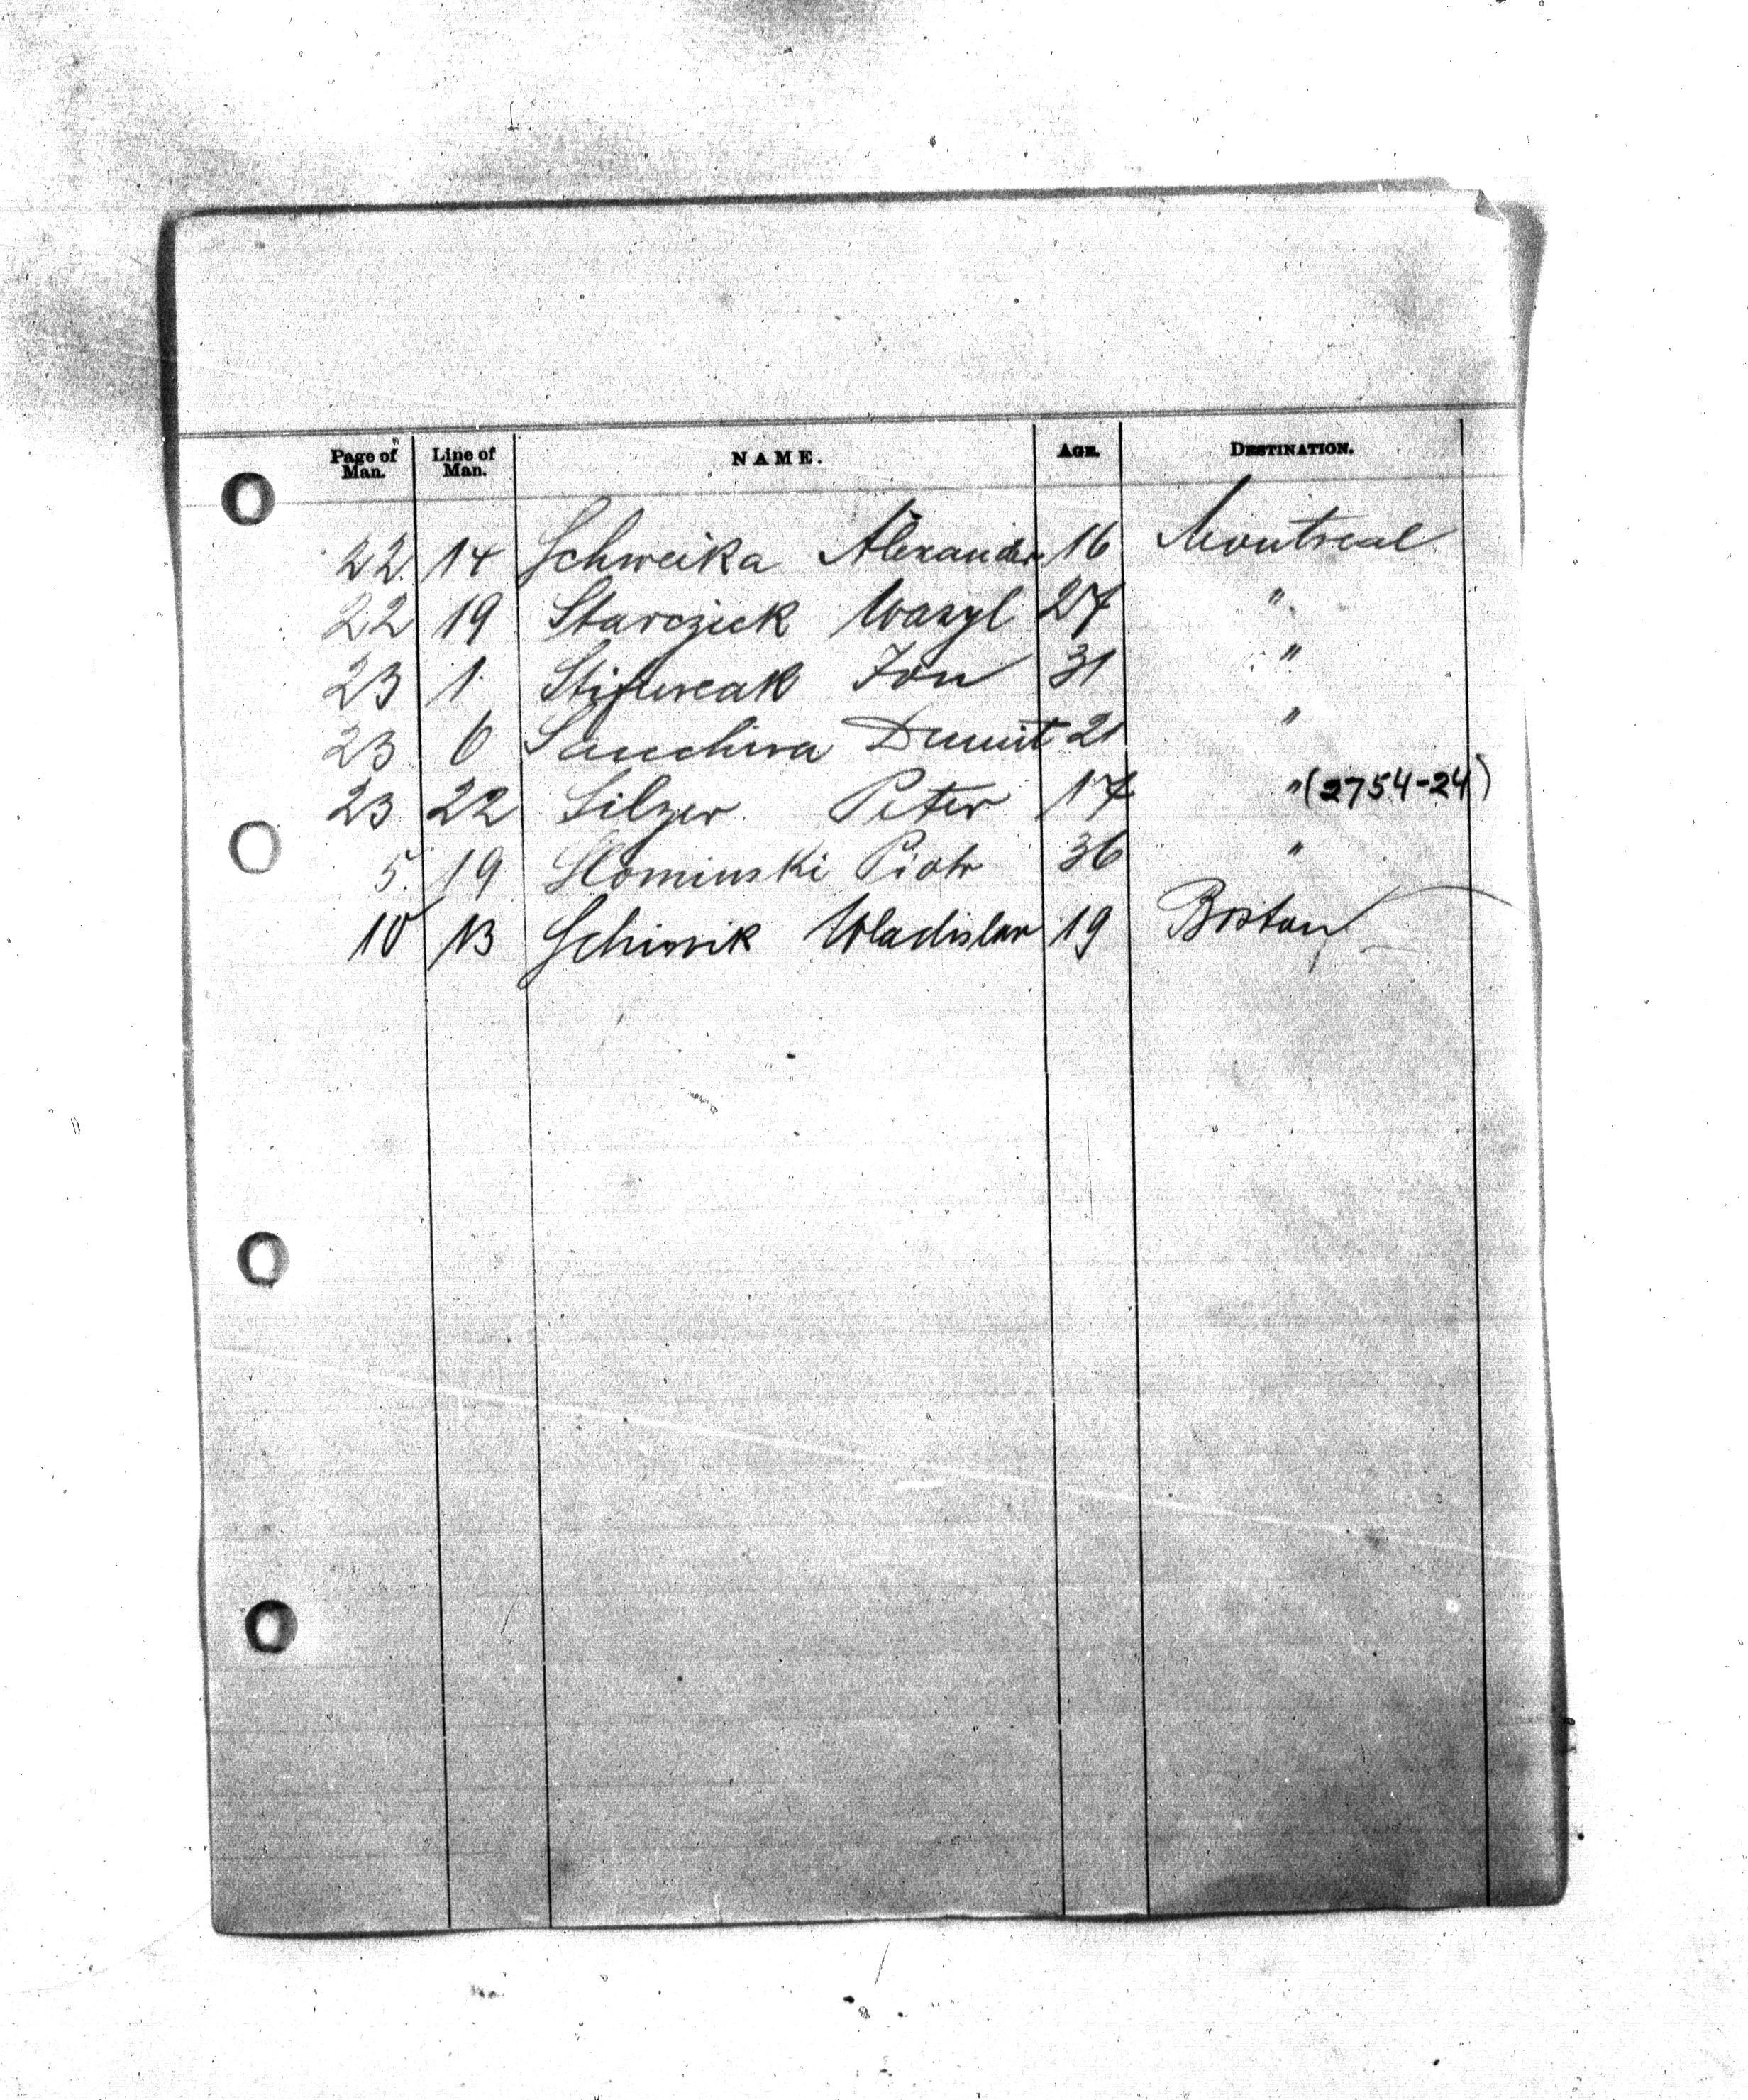 Page of Man. Line of Man. NAME. AGE. DESTINATION.
22 14 Schweika Alexander 16 Montreal
22 19 Starczick Wasyl 27 "
23 1 Ion 31 "
23 6 Dumit 21 "
23 22 Silzer Peter 17 " (2754-24)
5. 19 Slominski Piotr 36 "
10 13 Wladislaw 19 Boston